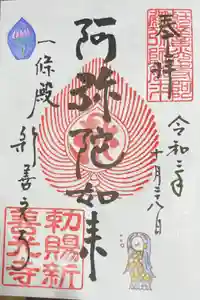 奉拝
令和二年
十月二十八日
阿弥陀如来
一條殿
新善光寺
勅賜新
善光寺